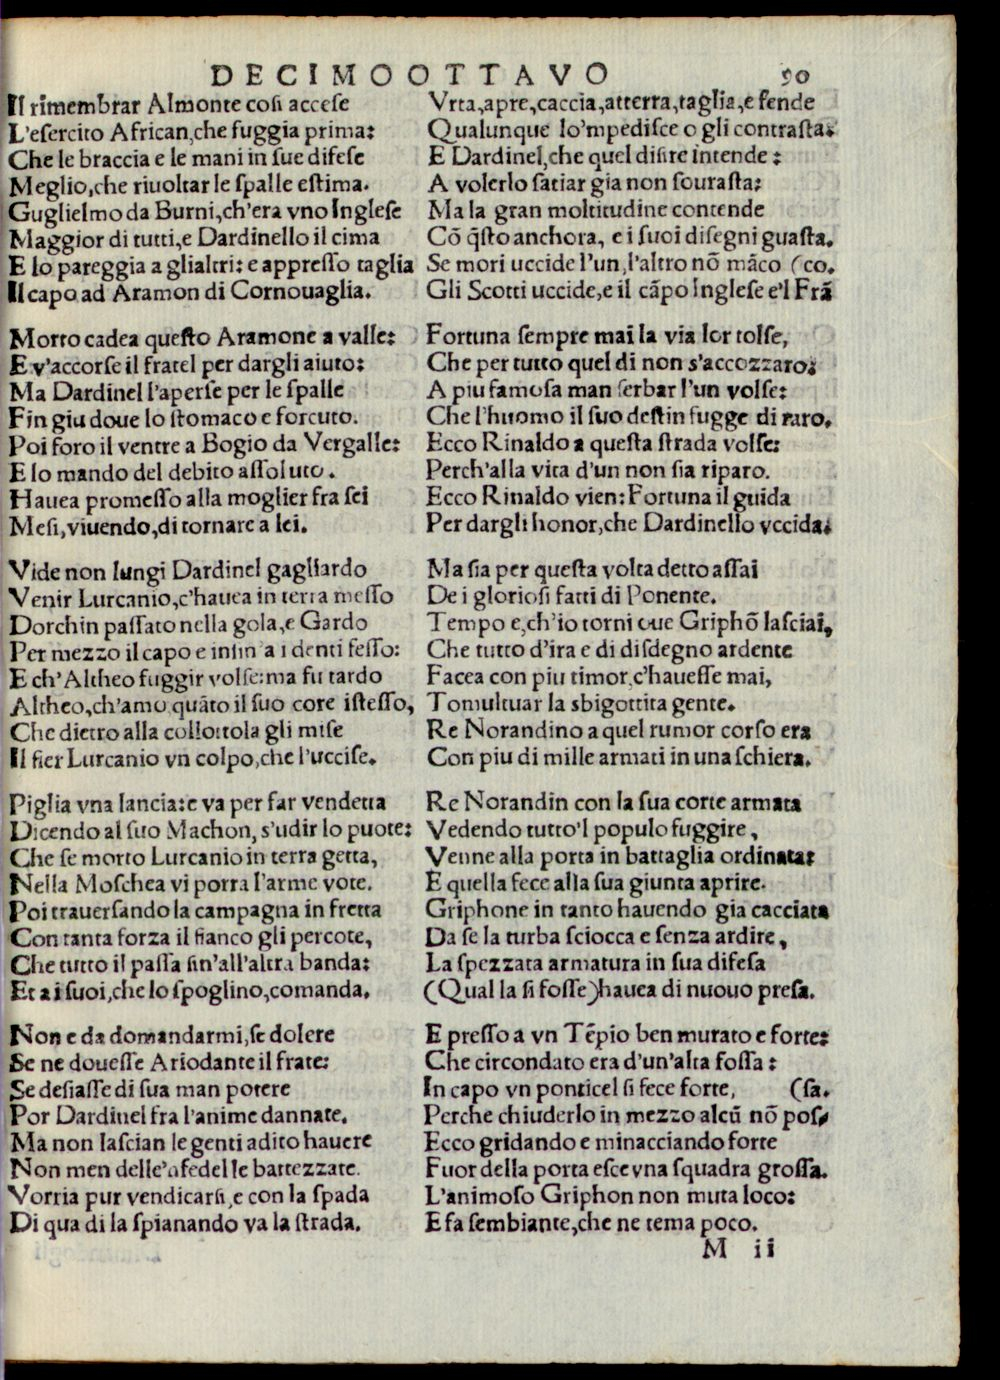 DECIMOOTTAVO 90
Il rimembrar Almonte cosi accese
L'esercito African,che fuggia prima:
Che le braccia e le mani in sue difese
Meglio,che riuoltar le spalle estima.
Guglielmo da Burni,ch'era vno Inglese
Maggior di tutti,e Dardinello il cima
E lo pareggia a glialtri: e appresso taglia
Il capo ad Aramon di Cornouaglia.
Morto cadea questo Aramone a valle:
E v'accorse il fratel per dargli aiuto:
Ma Dardinel l'aperse per le spalle
Fin giu doue lo stomaco e forcuto.
Poi foro il ventre a Bogio da Vergalle:
E lo mando del debito assoluto.
Hauea promesso alla moglier fra sei
Mesi,viuendo,di tornare a lei.
Vide non lungi Dardinel gagliardo
Venir Lurcanio,c'hauea in terra messo
Dorchin passato nella gola,e Gardo
Per mezzo il capo e insin a i denti fesso:
E ch'Altheo fuggir volse:ma fu tardo
Altheo,ch'amo quāto il suo core istesso,
Che dietro alla collottola gli mise
Il fier Lurcanio vn colpo,che l'uccise.
Piglia vna lancia:e va per far vendetta
Dicendo al suo Machon, s'udir lo puote:
Che se morto Lurcanio in terra getta,
Nella Moschea vi porra l'arme vote.
Poi trauersando la campagna in fretta
Con tanta forza il fianco gli percote,
Che tutto il passa sin'all'altra banda:
Et a i suoi,che lo spoglino,comanda.
Non e da domandarmi,se dolere
Se ne douesse Ariodante il frate:
Se desiasse di sua man potere
Por Dardinel fra l'anime dannate.
Ma non lascian le genti adito hauere
Non men delle'nfedel le battezzate.
Vorria pur vendicarsi,e con la spada
Di qua di la spianando va la strada.
Vrta,apre,caccia,atterra,taglia,e fende
Qualunque lo'mpedisce o gli contrasta.
E Dardinel,che quel disire intende :
A volerlo satiar gia non sourasta:
Ma la gran moltitudine contende
Cō q̄sto anchora, e i suoi disegni guasta.
Se mori uccide l'un,l'altro nō māco (co.
Gli Scotti uccide,e il cāpo Inglese e'l Frā
Fortuna sempre mai la via lor tolse,
Che per tutto quel di non s'accozzaro:
A piu famosa man serbar l'un volse:
Che l'huomo il suo destin fugge di raro.
Ecco Rinaldo a questa strada volse:
Perch'alla vita d'un non sia riparo.
Ecco Rinaldo vien: Fortuna il guida
Per dargli honor,che Dardinello vccida.
Ma sia per questa volta detto assai
De i gloriosi fatti di Ponente.
Tempo e,ch'io torni oue Griphō lasciai,
Che tutto d'ira e di disdegno ardente
Facea con piu timor,c'hauesse mai,
Tomultuar la sbigottita gente.
Re Norandino a quel rumor corso era
Con piu di mille armati in una schiera.
Re Norandin con la sua corte armata
Vedendo tutto'l populo fuggire,
Venne alla porta in battaglia ordinata:
E quella fece alla sua giunta aprire.
Griphone in tanto hauendo gia cacciata
Da se la turba sciocca e senza ardire,
La spezzata armatura in sua difesa
(Qual la si fosse)hauea di nuouo presa.
E presso a vn Tēpio ben murato e forte:
Che circondato era d'un'alta fossa :
In capo vn ponticel si fece forte, (sa.
Perche chiuderlo in mezzo alcū nō pos-
Ecco gridando e minacciando forte
Fuor della porta esce vna squadra grossa.
L'animoso Griphon non muta loco:
E fa sembiante,che ne tema poco.
M ii